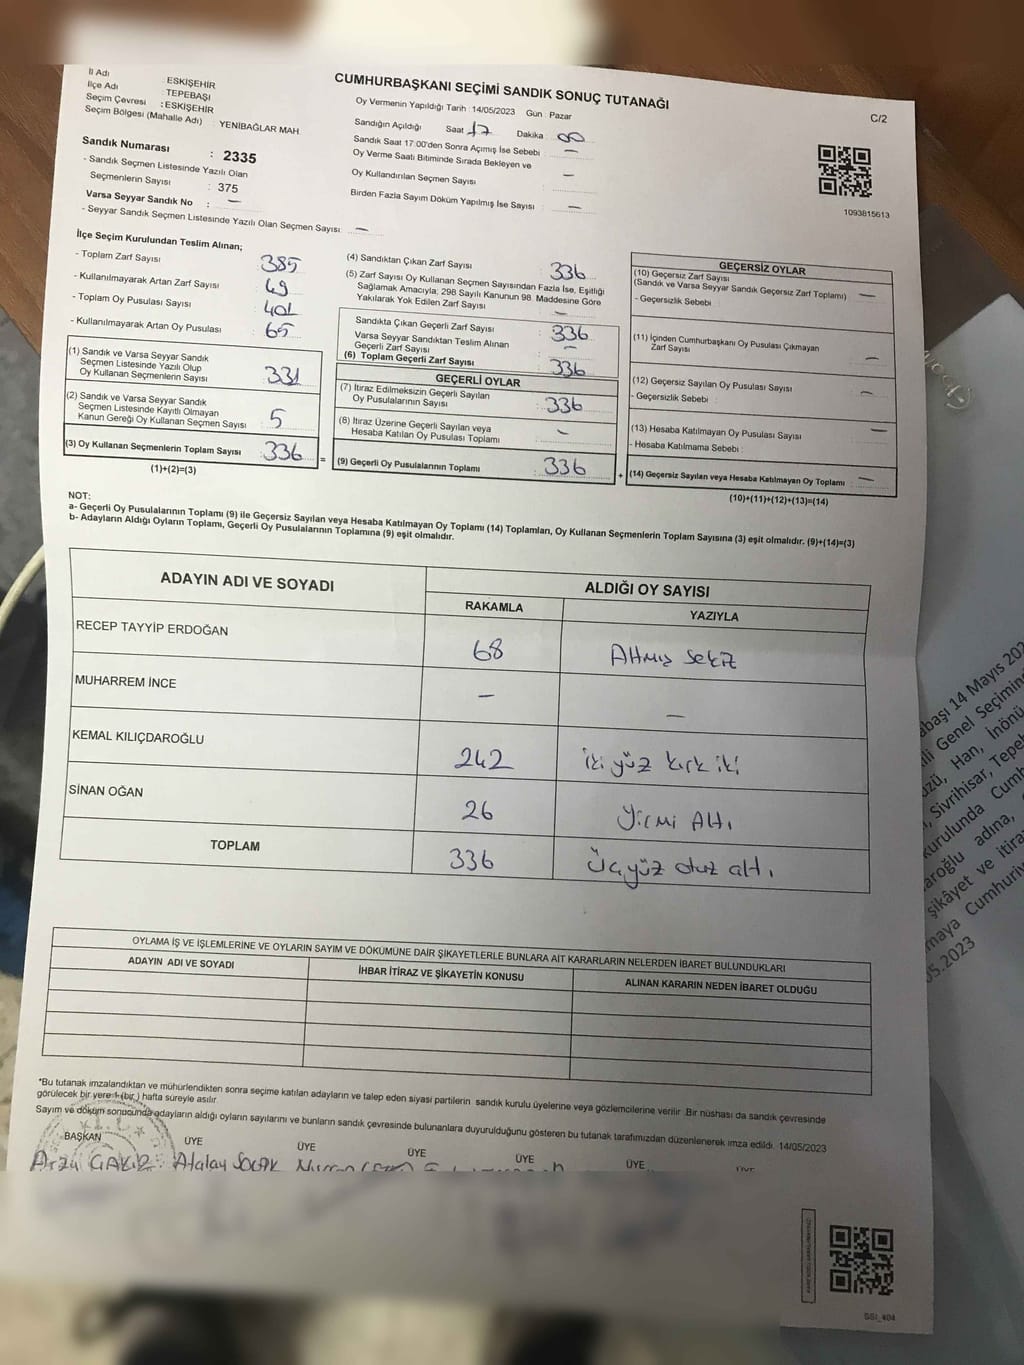 CUMHURBAŞKANI SEÇİMİ SANDIK SONUÇ TUTANAĞI
C/2
İl Adı : ESKİŞEHİR
İlçe Adı : TEPEBAŞI
Seçim Çevresi : ESKİŞEHİR
Seçim Bölgesi (Mahalle Adı) : YENİBAĞLAR MAH.
Sandık Numarası : 2335
- Sandık Seçmen Listesinde Yazılı Olan
Seçmenlerin Sayısı : 375
Varsa Seyyar Sandık No : —
- Seyyar Sandık Seçmen Listesinde Yazılı Olan Seçmen Sayısı: —
Oy Vermenin Yapıldığı Tarih : 14/05/2023 Gün : Pazar
Sandığın Açıldığı Saat 17 Dakika : 00
Sandık Saat 17:00'den Sonra Açımış İse Sebebi : —
Oy Verme Saati Bitiminde Sırada Bekleyen ve
Oy Kullandırılan Seçmen Sayısı : —
Birden Fazla Sayım Döküm Yapılmış İse Sayısı : —
1093815613
İlçe Seçim Kurulundan Teslim Alınan;
- Toplam Zarf Sayısı : 385
- Kullanılmayarak Artan Zarf Sayısı : 49
- Toplam Oy Pusulası Sayısı : 401
- Kullanılmayarak Artan Oy Pusulası : 65
(1) Sandık ve Varsa Seyyar Sandık
Seçmen Listesinde Yazılı Olup
Oy Kullanan Seçmenlerin Sayısı : 331
(2) Sandık ve Varsa Seyyar Sandık
Seçmen Listesinde Kayıtlı Olmayan
Kanun Gereği Oy Kullanan Seçmen Sayısı : 5
(3) Oy Kullanan Seçmenlerin Toplam Sayısı : 336
(1)+(2)=(3)
(4) Sandıktan Çıkan Zarf Sayısı : 336
(5) Zarf Sayısı Oy Kullanan Seçmen Sayısından Fazla İse, Eşitliği
Sağlamak Amacıyla; 298 Sayılı Kanunun 98. Maddesine Göre
Yakılarak Yok Edilen Zarf Sayısı : —
Sandıkta Çıkan Geçerli Zarf Sayısı : 336
Varsa Seyyar Sandıktan Teslim Alınan
Geçerli Zarf Sayısı : —
(6) Toplam Geçerli Zarf Sayısı : 336
GEÇERLİ OYLAR
(7) İtiraz Edilmeksizin Geçerli Sayılan
Oy Pusulalarının Sayısı : 336
(8) İtiraz Üzerine Geçerli Sayılan veya
Hesaba Katılan Oy Pusulası Toplamı : —
= (9) Geçerli Oy Pusulalarının Toplamı : 336
GEÇERSİZ OYLAR
(10) Geçersiz Zarf Sayısı
(Sandık ve Varsa Seyyar Sandık Geçersiz Zarf Toplamı) : —
- Geçersizlik Sebebi :
(11) İçinden Cumhurbaşkanı Oy Pusulası Çıkmayan
Zarf Sayısı : —
(12) Geçersiz Sayılan Oy Pusulası Sayısı : —
- Geçersizlik Sebebi :
(13) Hesaba Katılmayan Oy Pusulası Sayısı : —
- Hesaba Katılmama Sebebi :
+ (14) Geçersiz Sayılan veya Hesaba Katılmayan Oy Toplamı : —
(10)+(11)+(12)+(13)=(14)
NOT:
a- Geçerli Oy Pusulalarının Toplamı (9) ile Geçersiz Sayılan veya Hesaba Katılmayan Oy Toplamı (14) Toplamları, Oy Kullanan Seçmenlerin Toplam Sayısına (3) eşit olmalıdır. (9)+(14)=(3)
b- Adayların Aldığı Oyların Toplamı, Geçerli Oy Pusulalarının Toplamına (9) eşit olmalıdır.
ADAYIN ADI VE SOYADI ALDIĞI OY SAYISI
RAKAMLA YAZIYLA
RECEP TAYYİP ERDOĞAN 68 Altmış sekiz
MUHARREM İNCE — —
KEMAL KILIÇDAROĞLU 242 iki yüz kırk iki
SİNAN OĞAN 26 Yirmi Altı
TOPLAM 336 Üçyüz otuz altı
OYLAMA İŞ VE İŞLEMLERİNE VE OYLARIN SAYIM VE DÖKÜMÜNE DAİR ŞİKAYETLERLE BUNLARA AİT KARARLARIN NELERDEN İBARET BULUNDUKLARI
ADAYIN ADI VE SOYADI İHBAR İTİRAZ VE ŞİKAYETİN KONUSU ALINAN KARARIN NEDEN İBARET OLDUĞU
*Bu tutanak imzalandıktan ve mühürlendikten sonra seçime katılan adayların ve talep eden siyasi partilerin sandık kurulu üyelerine veya gözlemcilerine verilir. Bir nüshası da sandık çevresinde
görülecek bir yere 1 (bir) hafta süreyle asılır.
Sayım ve döküm sonucunda adayların aldığı oyların sayılarını ve bunların sandık çevresinde bulunanlara duyurulduğunu gösteren bu tutanak tarafımızdan düzenlenerek imza edildi. 14/05/2023
BAŞKAN ÜYE ÜYE ÜYE ÜYE ÜYE ÜYE
Arzu Atalay
SSI_404
abaşı 14 Mayıs 202
lli Genel Seçimin
Han, İnönü
Sivrihisar, Tepe
kurulunda Cumh
aroğlu adına,
şikâyet ve itira
maya Cumhuriy
05.2023